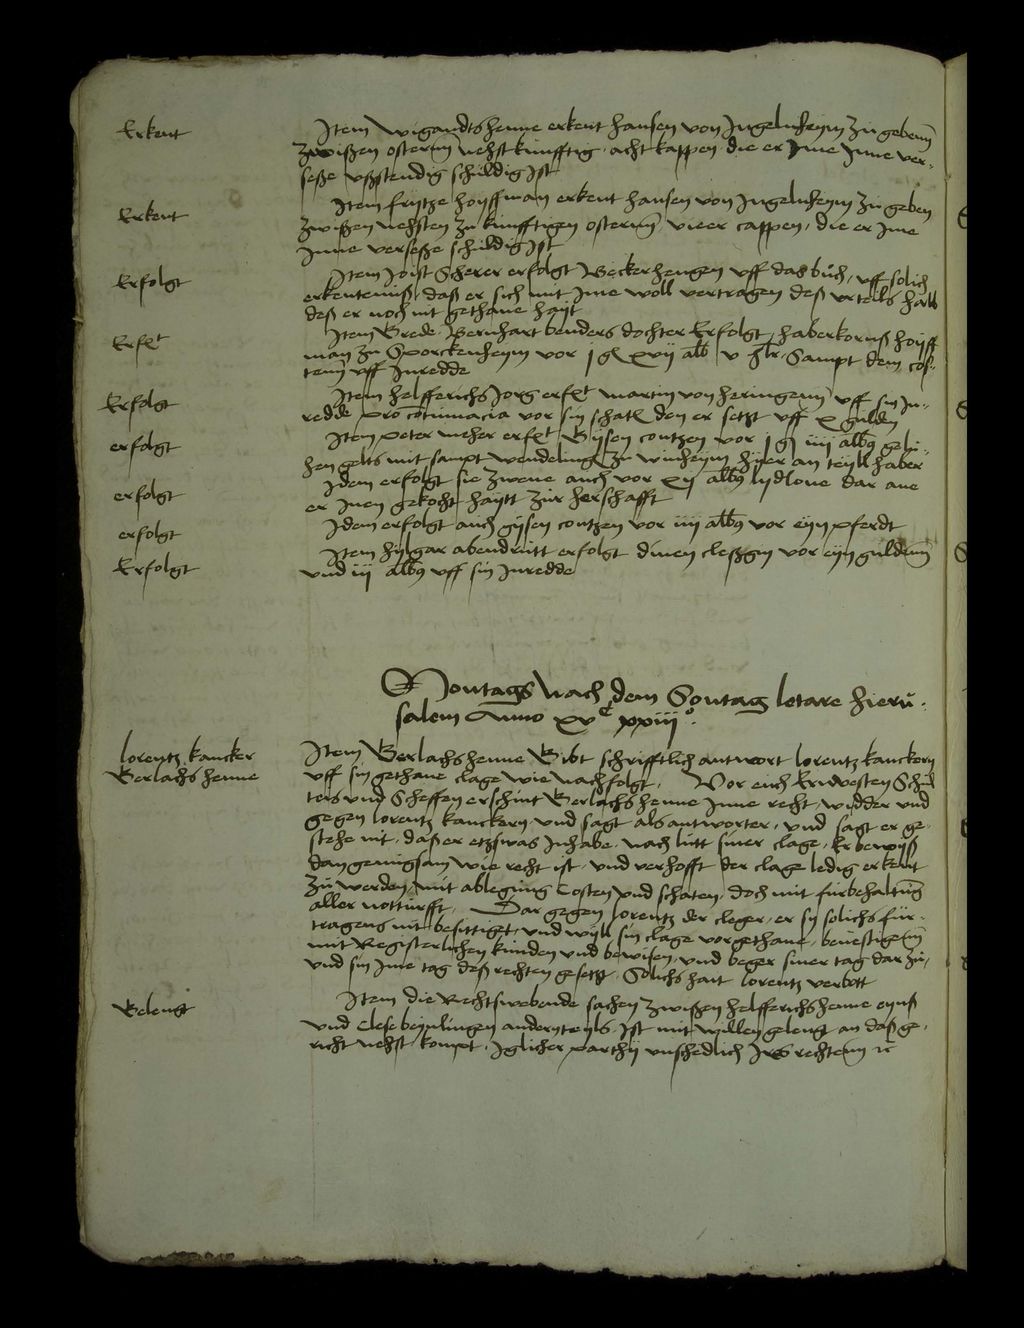 Erkent
Item Wigandts henne erkent hansen von Ingelnheym zu geben
zwißen ostern nehst kunfftig acht kappen die er Ime Inne ver-
seße vßstendig schuldig Ist
Erkent
Item fritze hoiffman erkent hansen von Ingelnheym zu geben
zwißen nehsten zu kunfftigen ostern vieer cappen, die er Ime
Inne verseße schuldig Ist
Erfolgt
Item Joist Scherer erfolgt Beckerhengen vff das buch, vff solich
erkentniß, daß er sich mit Ime woll vertragen deß vrteils halb
deß er noch nit gethane hait
Erfolgt
Item Brede Bernhart benders dochter Erfolgt, haberkornß hoiff
man zu Sporckenheym vor j gl xvij alb v hlr, Sampt dem cos-
ten vff Inredde
Erfolgt
Item helfferichs Jorg erfolgt martin von heringenn vff sin In-
redde pro contumacia vor sin schaten den er setzt vff x gulden
erfolgt
Item peter meher erfolgt Gijsen contzen vor j gl iiij albus geli-
hen gelts mit sampt wendeling zu winheym hijer an teyll haber
erfolgt
Idem erfolgt sie zwene auch vor xij albus lydlone dar ane
er Inen gekocht haytt zur herschafft
erfolgt
Idem erfolgt auch gijsen contzen vor iiij albus vor eyn pferdt
Erfolgt
Item hilgar abendrutt erfolgt dinen cleßgin vor eyn gulden
vnd iij albus vff sin Inredde
Montags Nach dem Sontag letare hieru-
salem Anno xvc xxiijo.
lorentz kancker
Gerlachs henne
Item Gerlachs henne Gibt schrifftlich antwort lorentz kanckern
vff sin gethane clage wie nachfolgt. Vor euch Ernvesten Schul
teis vnd Scheffen erschint Gerlachs henne Inne recht, widder vnd
gegen lorentz kanckern, vnd sagt als antworter, vnd sagt er ge-
stehe nit, daß er etzswas Inhabe nach lutt siner clage, Er bewyß
dan genugsam wie recht ist, vnd verhofft der clage ledig erkent
zu werden, mit ablegung Costen vnd schaten, doch mit furbehaltung
aller notturfft. Dar gegen lorentz der cleger, er sy solichs fur-
tragens nit besittiget, vnd wyll sin clage vorgethane, bevestigenn
mit Registerlichen kunden vnd bewisen, vnd beger siner tag dar zu,
vnd sin Ime tag deß rechten gesetzt. Solichs hatt lorentz verbott
Gelengt
Item die Rechtswebende sachen zwißen helfferichs henne eynß
vnd Clese beymlingen anderyteyls, Ist mit willen gelengt an daß ge-
richt nehst kompt, Iglicher parthij vnschedlich Irs rechtenn etc